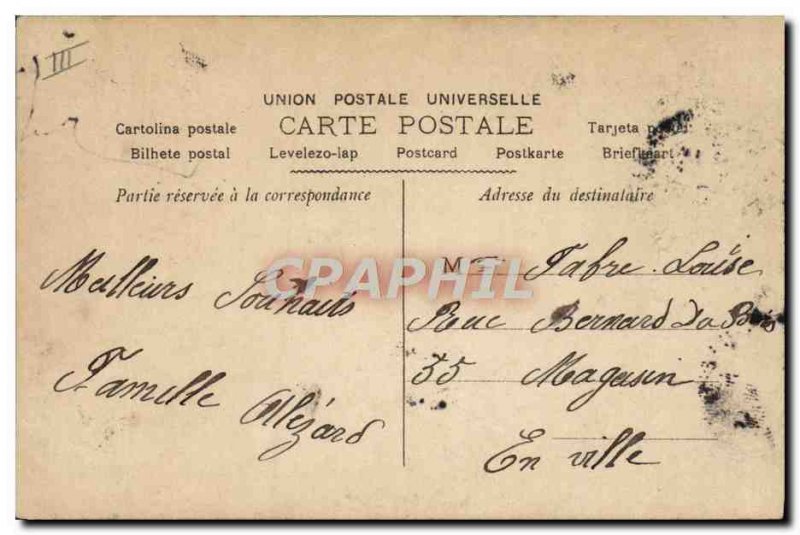 III
UNION POSTALE UNIVERSELLE
CARTE POSTALE
Cartolina postale
Tarjeta postal
Bilhete postal
Levelezo-lap
Postcard
Postkarte
Briefkaart
Partie réservée à la correspondance
Adresse du destinataire
CPAPHIL
Meilleurs Souhaits
Famille Allézard
M Fabre Louise
Rue Bernard Du Bois
55 Magasin
En ville